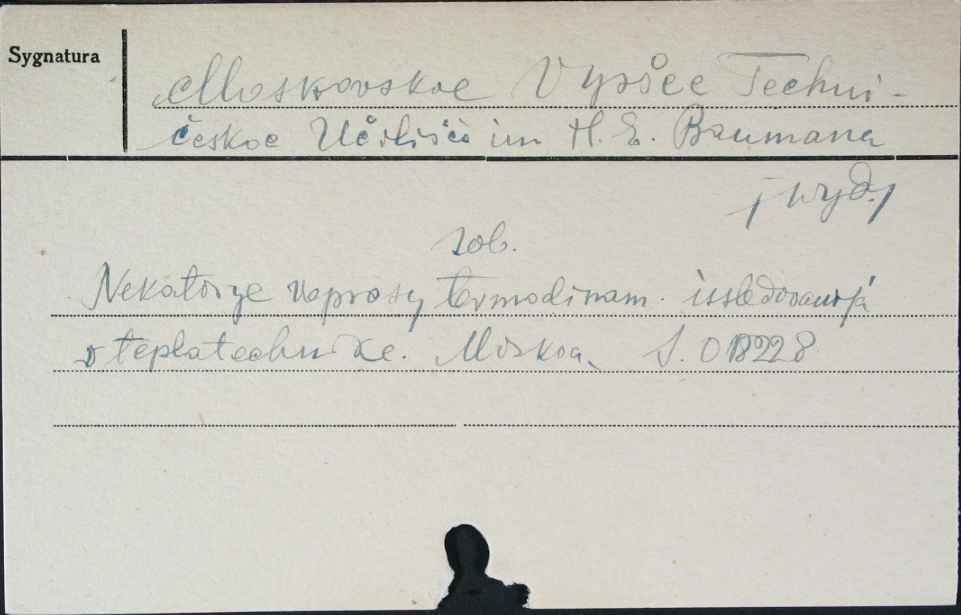 Sygnatura
Moskovskoe Vysšee Techni-
českoe Učilišče im H. E. Baumana
/ wyd./
zob.
Nekatorye voprosy termodinam. issledovanija
v teplatechnike. Moskva. S. 01B228